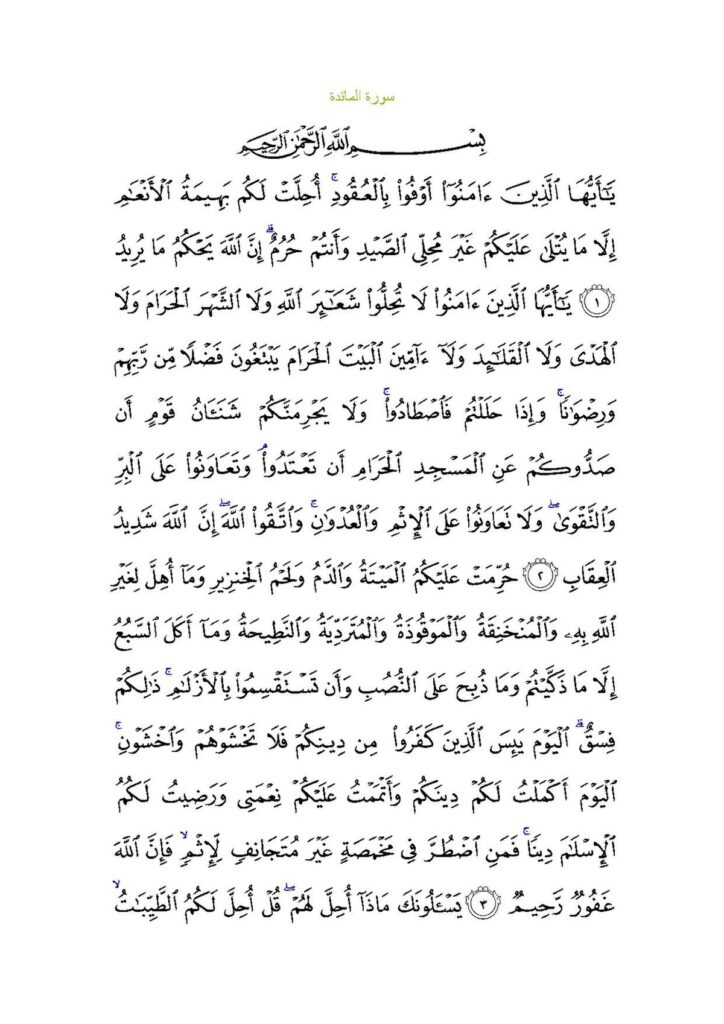 سورة المائدة
بِسْمِ اللَّهِ الرَّحْمَٰنِ الرَّحِيمِ
يَٰٓأَيُّهَا ٱلَّذِينَ ءَامَنُوٓا۟ أَوْفُوا۟ بِٱلْعُقُودِ ۚ أُحِلَّتْ لَكُم بَهِيمَةُ ٱلْأَنْعَٰمِ
إِلَّا مَا يُتْلَىٰ عَلَيْكُمْ غَيْرَ مُحِلِّى ٱلصَّيْدِ وَأَنتُمْ حُرُمٌ ۗ إِنَّ ٱللَّهَ يَحْكُمُ مَا يُرِيدُ
١ يَٰٓأَيُّهَا ٱلَّذِينَ ءَامَنُوا۟ لَا تُحِلُّوا۟ شَعَٰٓئِرَ ٱللَّهِ وَلَا ٱلشَّهْرَ ٱلْحَرَامَ وَلَا
ٱلْهَدْىَ وَلَا ٱلْقَلَٰٓئِدَ وَلَآ ءَآمِّينَ ٱلْبَيْتَ ٱلْحَرَامَ يَبْتَغُونَ فَضْلًا مِّن رَّبِّهِمْ
وَرِضْوَٰنًا ۚ وَإِذَا حَلَلْتُمْ فَٱصْطَادُوا۟ ۚ وَلَا يَجْرِمَنَّكُمْ شَنَـَٔانُ قَوْمٍ أَن
صَدُّوكُمْ عَنِ ٱلْمَسْجِدِ ٱلْحَرَامِ أَن تَعْتَدُوا۟ ۘ وَتَعَاوَنُوا۟ عَلَى ٱلْبِرِّ
وَٱلتَّقْوَىٰ ۖ وَلَا تَعَاوَنُوا۟ عَلَى ٱلْإِثْمِ وَٱلْعُدْوَٰنِ ۚ وَٱتَّقُوا۟ ٱللَّهَ ۖ إِنَّ ٱللَّهَ شَدِيدُ
ٱلْعِقَابِ ٢ حُرِّمَتْ عَلَيْكُمُ ٱلْمَيْتَةُ وَٱلدَّمُ وَلَحْمُ ٱلْخِنزِيرِ وَمَآ أُهِلَّ لِغَيْرِ
ٱللَّهِ بِهِۦ وَٱلْمُنْخَنِقَةُ وَٱلْمَوْقُوذَةُ وَٱلْمُتَرَدِّيَةُ وَٱلنَّطِيحَةُ وَمَآ أَكَلَ ٱلسَّبُعُ
إِلَّا مَا ذَكَّيْتُمْ وَمَا ذُبِحَ عَلَى ٱلنُّصُبِ وَأَن تَسْتَقْسِمُوا۟ بِٱلْأَزْلَٰمِ ۚ ذَٰلِكُمْ
فِسْقٌ ۗ ٱلْيَوْمَ يَئِسَ ٱلَّذِينَ كَفَرُوا۟ مِن دِينِكُمْ فَلَا تَخْشَوْهُمْ وَٱخْشَوْنِ ۚ
ٱلْيَوْمَ أَكْمَلْتُ لَكُمْ دِينَكُمْ وَأَتْمَمْتُ عَلَيْكُمْ نِعْمَتِى وَرَضِيتُ لَكُمُ
ٱلْإِسْلَٰمَ دِينًا ۚ فَمَنِ ٱضْطُرَّ فِى مَخْمَصَةٍ غَيْرَ مُتَجَانِفٍ لِّإِثْمٍ ۙ فَإِنَّ ٱللَّهَ
غَفُورٌ رَّحِيمٌ ٣ يَسْـَٔلُونَكَ مَاذَآ أُحِلَّ لَهُمْ ۖ قُلْ أُحِلَّ لَكُمُ ٱلطَّيِّبَٰتُ ۙ